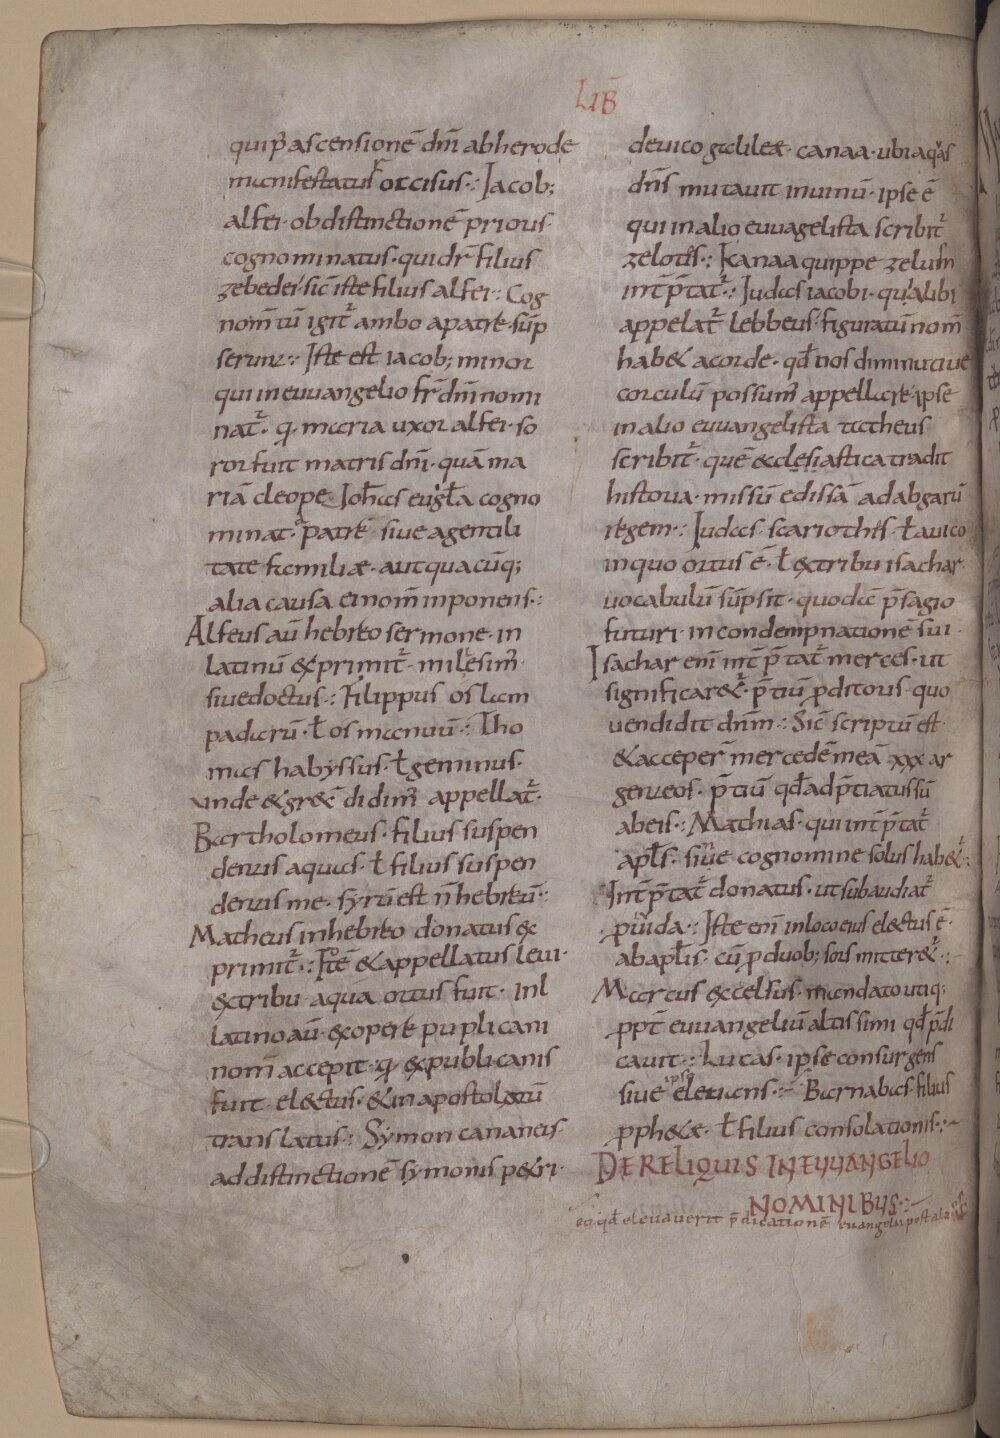 LIB̄
qui p̄ ascensionē dn̄i ab herode
manifestatus occisus:· Iacob;
alfei· ob distinctionē prioris·
cognominatus· qui dr̄ filius
zebedei· sic̄ iste filius alfei:· Cog
nom̄ tū igit̄ ambo a patre· sūp
serunt:· Iste est iacob; minor
qui in euuangelio fr̄ dn̄i nomi
nat̄· q̨ maria uxor alfei· so
ror fuit matris dn̄i· quā ma
riā cleope Ioh̄s euḡla cogno
minat· a patre· siue a gentili
tate familiæ· aut quacūq;
alia causa ei nom̄ inponens:·
Alfeus aū hebreo sermone· in
latinū exprimit̄· milesim̄
siue doctus:· Filippus os lam
padarū· ł os manuū:· Tho
mas habyssus· ł geminus·
unde & gr&̄ didim̄ appellat̄·
Bartholomeus· filius suspen
dentis aquas· ł filius suspen
dentis me· syrū est n̄ hebreū:·
Matheus in hebreo donatus ex
primit̄:· Itē & appellatus leui·
ex tribu a qua ortus fuit· in l
latino aū ex opere puplicani
nom̄ accepit· q̨ ex publicanis
fuit el&ctus· & in apostolatū
translatus:· Symon cananeis·
ad distinctionē symonis p&ri·
de uico galileæ· canaa· ubi aq̄as
dn̄s mutauit in uinū· ipse ē
qui in alio euuagelista scribit̄
zelotis:· Kanaa quippe zelum
int̄p̄tat̄:· Iudas iacobi· qui alibi
appelat̄ lebbeus· figuratū nom̄
hab& a corde· qđ nos diminutiue
corculū possum̄ appellare· ipse
in alio euuangelista tatheus
scribit̄· quē ecclesiastica tradit
historia· missū edissā ad abgarū
regem:· Iudas· scariothis· ł a uico
in quo ortus ē· ł ex tribu isachar·
uocabulū sūpsit· quodā p̄sagio
futuri· in condempnationē sui·
Isachar eni int̄p̄tat̄ merces· ut
significar&̄· p̄tiū p̄ditoris· quo
uendidit dn̄m:· Sic̄ scriptū est·
& acceper̄ mercedē meā xxx ar
genteos· p̄tiū qđ ad p̄tiatus sū
ab eis:· Mathias· qui int̄p̄tat̄
apłs· siue cognomine solus hab&̄:·
Int̄p̄tat̄ donatus· ut subaudiat̄
p iuda:· Iste eni in loco eius el&ctus ē·
ab apłis· cū p duob; sors mitter&̄:·
Marcus excelsus· mandato utiq;
ppt̄ euuangeliū altissimi qđ p̄di
cauit:· Lucas· ipse consurgens
siue ipse eleuans:· Barnabas filius
pph&æ· ł filius consolationis:·
DE RELIQUIS IN EUUANGELIO
NOMINIBUS:·
eo qđ eleuauerit p̄dicationē euangelii post alios